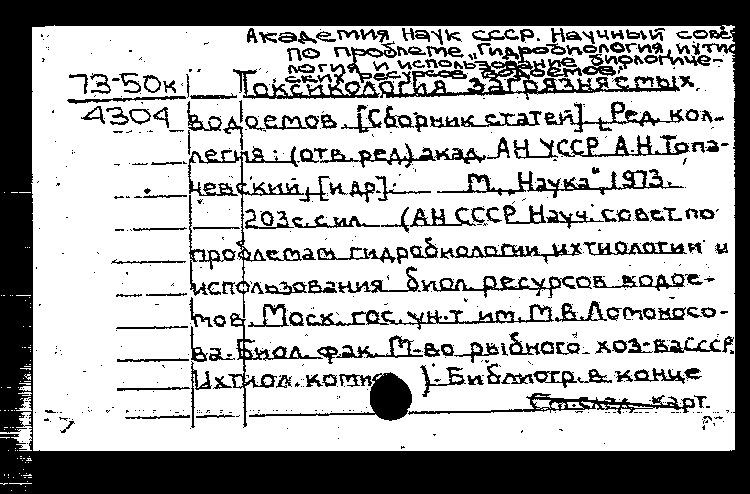 Академия Наук СССР. Научный совет
по проблеме „Гидробиология, ихтио
логия и использование биологиче-
ских ресурсов водоемов".
73-50к Токсикология загрязняемых
4304 водоемов. [Сборник статей]. Ред. кол-
легия: (отв. ред.) акад. АН УССР А.Н. Топа-
чевский, [и др]. М., „Наука", 1973.
203 с. с ил. (АН СССР. Науч. совет по
проблемам гидробиологии, ихтиологии и
использования биол. ресурсов водое-
мов. Моск. гос. ун-т им. М.В. Ломоносо-
ва. Биол. фак. М-во рыбного хоз-ва СССР.
Ихтиол. комис ). - Библиогр. в конце
См. след. карт.